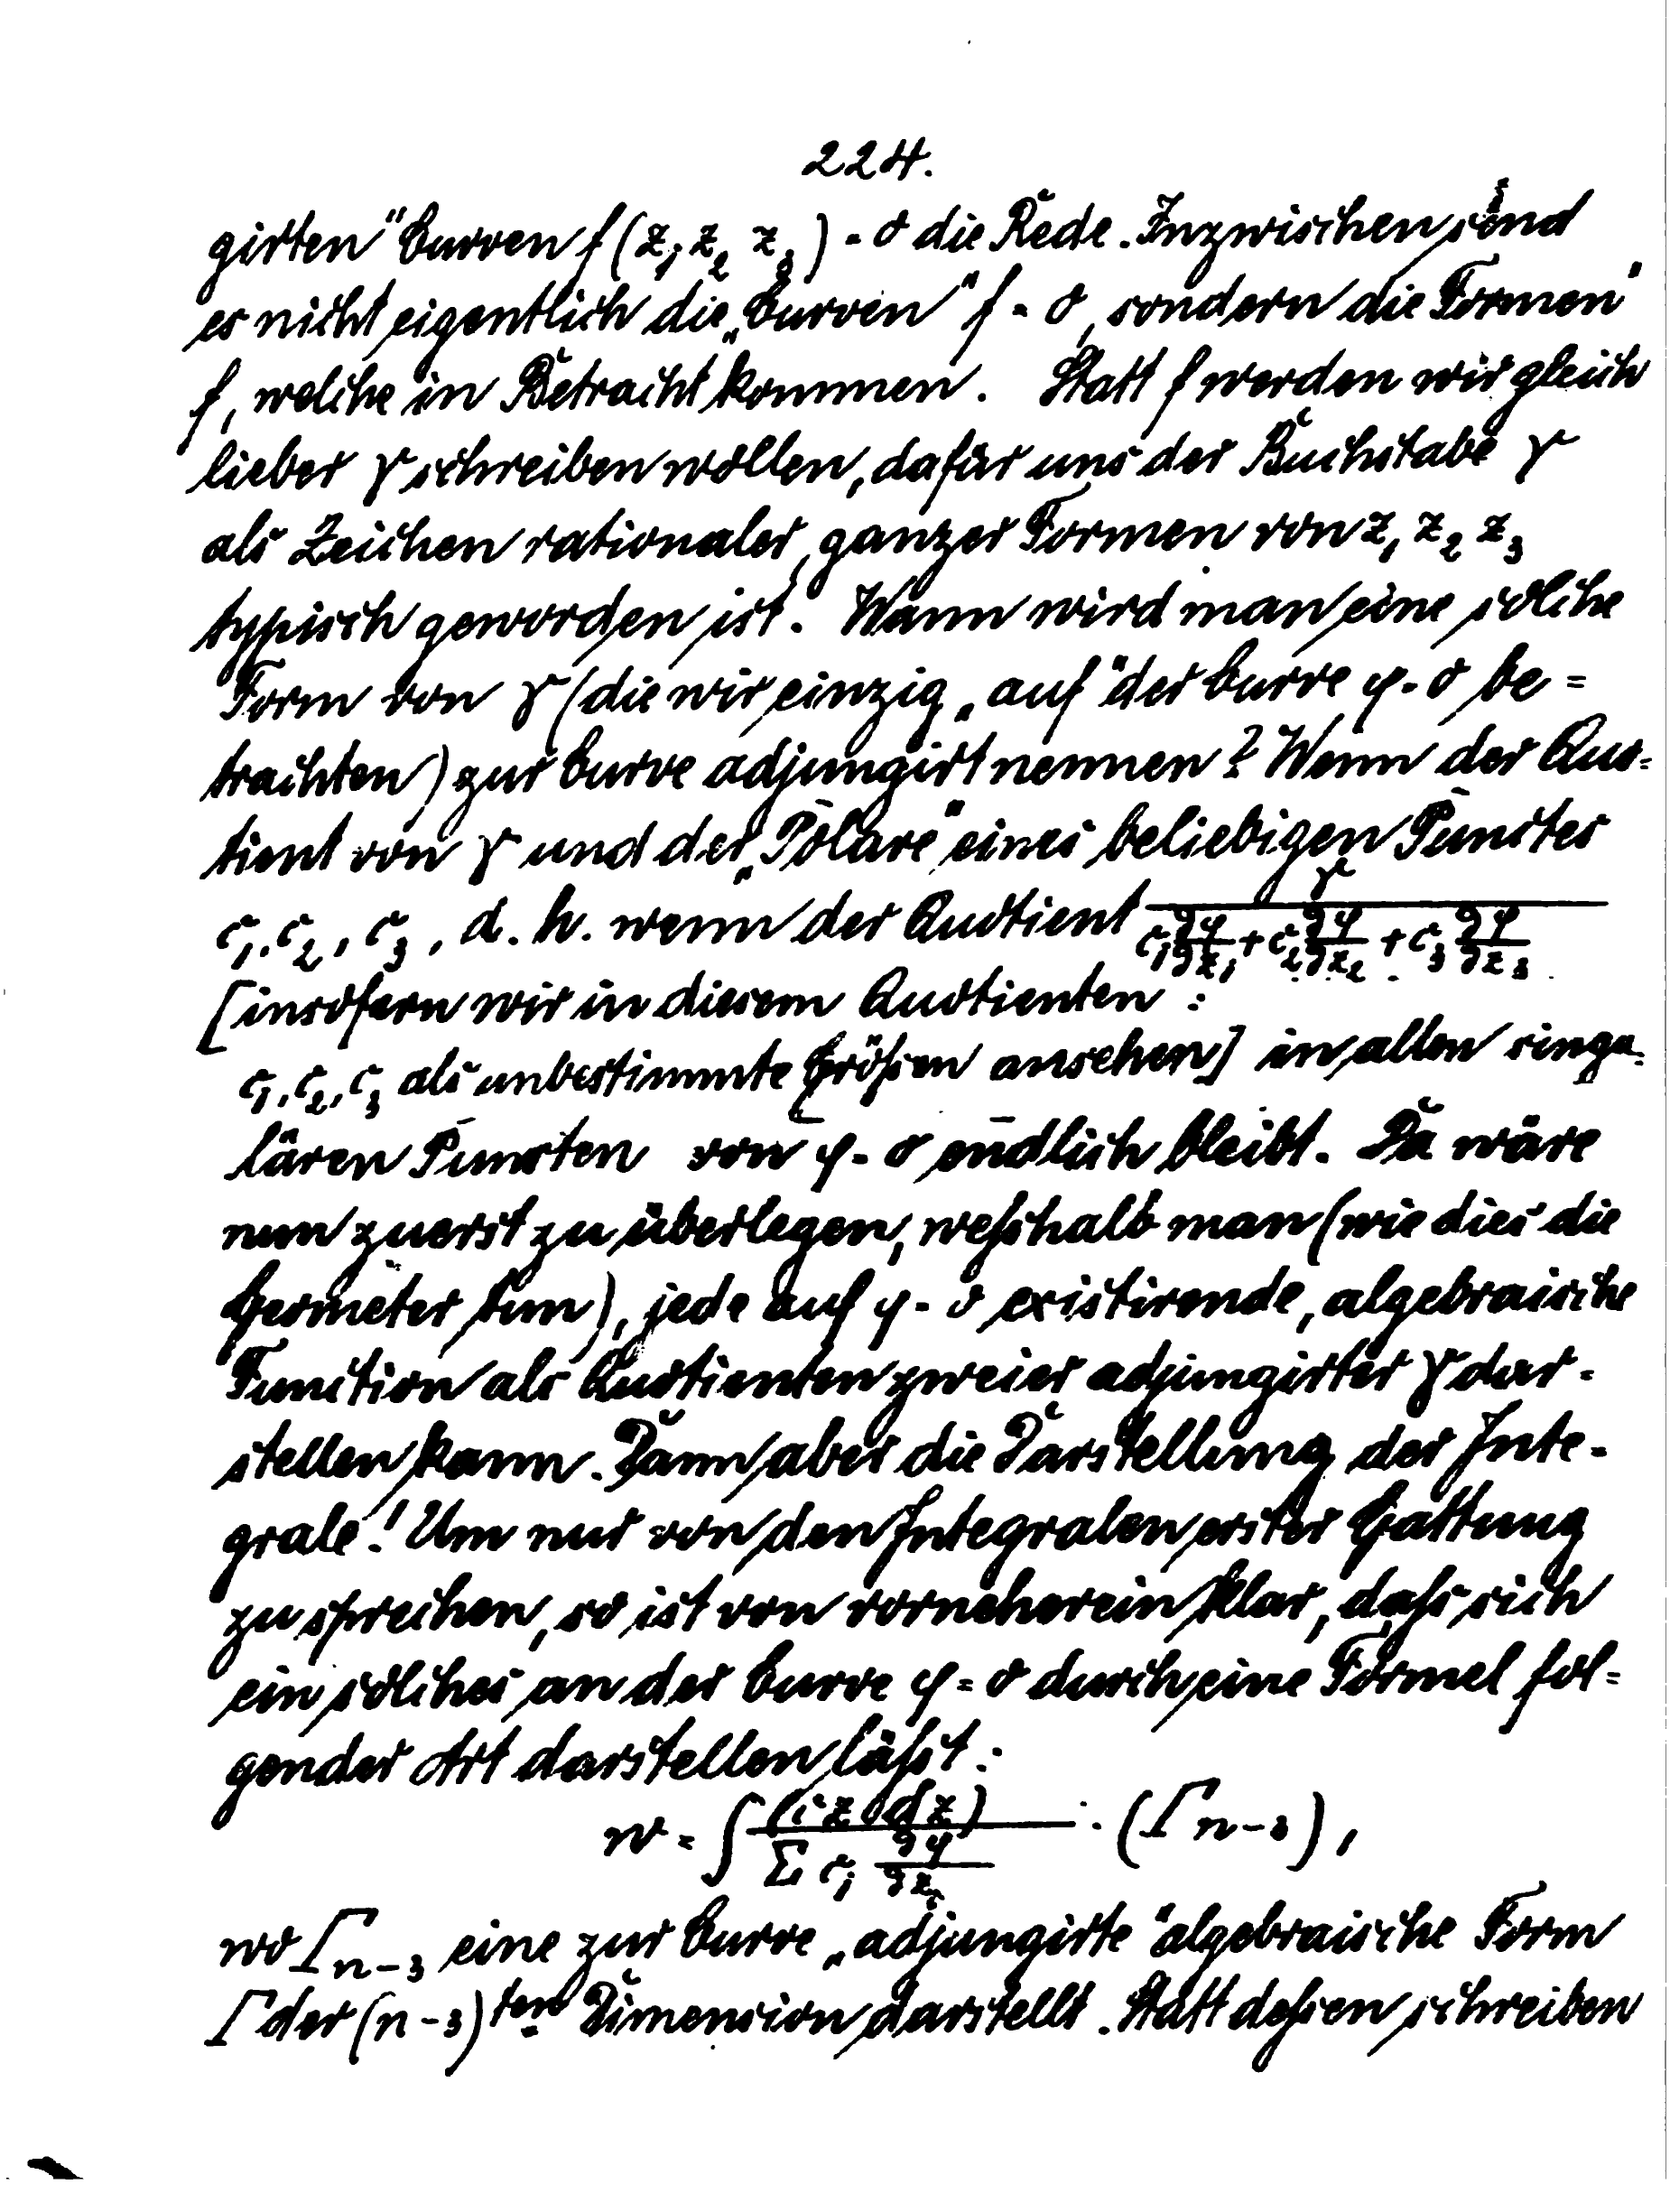 224.
girten" Curven f(z₁ z₂ z₃) = 0 die Rede. Inzwischen sind
es nicht eigentlich die „Curven" f = 0, sondern die Formen
f, welche in Betracht kommen. Statt f werden wir gleich
lieber γ schreiben wollen, dafür uns der Buchstabe γ
als Zeichen rationaler, ganzer Formen von z₁ z₂ z₃
typisch geworden ist. Wann wird man eine solche
Form von γ (die wir einzig „auf" der Curve φ = 0 be=
trachten) zur Curve adjungirt nennen? Wenn der Quo=
tient von γ und der „Polare" eines beliebigen Punctes
c₁, c₂, c₃, d. h. wenn der Quotient γ / (c₁ ∂φ/∂z₁ + c₂ ∂φ/∂z₂ + c₃ ∂φ/∂z₃)
[insofern wir in diesem Quotienten:
c₁, c₂, c₃ als unbestimmte Größen ansehen] in allen singu=
lären Puncten von φ = 0 endlich bleibt. Da wäre
nun zuerst zu überlegen, weßhalb man (wie dies die
Geometer tun), jede auf φ = 0 existirende, algebraische
Function als Quotienten zweier adjungirter γ dar=
stellen kann. Dann aber die Darstellung der Inte=
grale! Um nur von den Integralen erster Gattung
zu sprechen, so ist von vorneherein klar, daß sich
ein solches an der Curve φ = 0 durch eine Formel fol=
gender Art darstellen läßt:
w = ∫ (c z d z) / (Σ cᵢ ∂φ/∂zᵢ) · (Γ n-3),
wo Γn-3 eine zur Curve „adjungirte" algebraische Form
Γ der (n-3)ten Dimension darstellt. Statt deßen schreiben